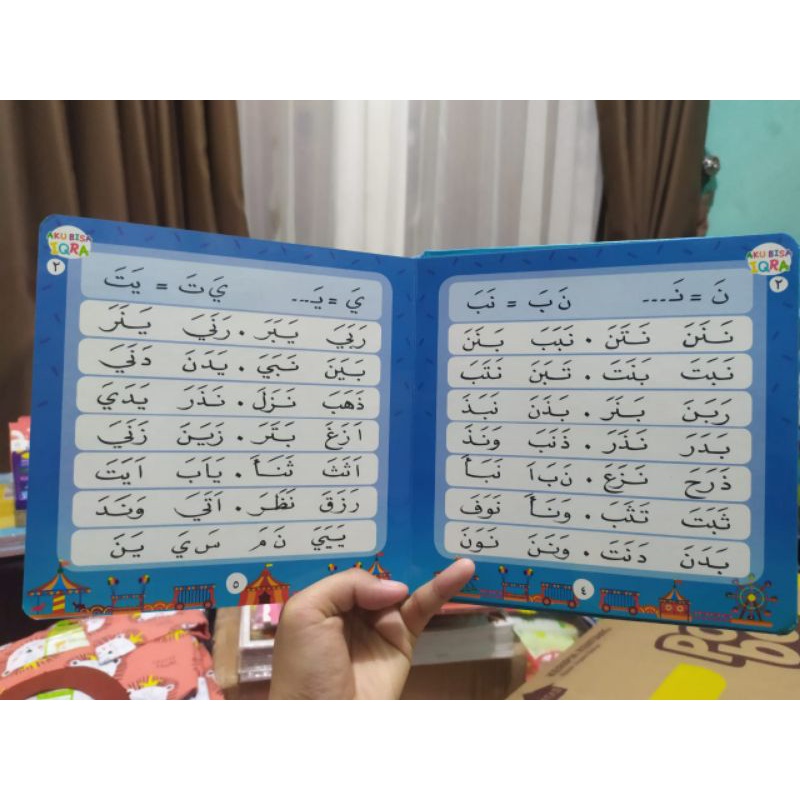 AKU BISA
IQRA
٢
نَ = نَـ... نَ بَ = نَبَ
نَنَنَ نَتَنَ . نَبَبَ بَنَنَ
نَبَتَ بَنَتَ . تَبَنَ نَتَبَ
رَبَنَ بَنَرَ . بَذَنَ نَبَذَ
بَدَرَ نَذَرَ . ذَنَبَ وَنَذَ
ذَرَحَ نَزَعَ . نَ بَ اَ نَبَأَ
ثَبَتَ تَثَبَ . وَنَأَ نَوَفَ
بَدَنَ دَنَتَ . وَنَنَ نَوَنَ
٤
AKU BISA
IQRA
٢
يَ = يَـ... يَ تَ = يَتَ
رَبَيَ يَبَرَ . رَنَيَ يَنَرَ
بَيَنَ نَبَيَ . يَدَنَ دَنَيَ
ذَهَبَ نَزَلَ . نَذَرَ يَدَيَ
اَزَغَ بَتَرَ . زَيَنَ زَنَيَ
اَثَثَ ثَنَأَ . يَابَ اَيَتَ
رَزَقَ نَظَرَ . اَتَيَ وَنَدَ
يَيَيَ نَ مَ سَ يَ يَنَ
٥